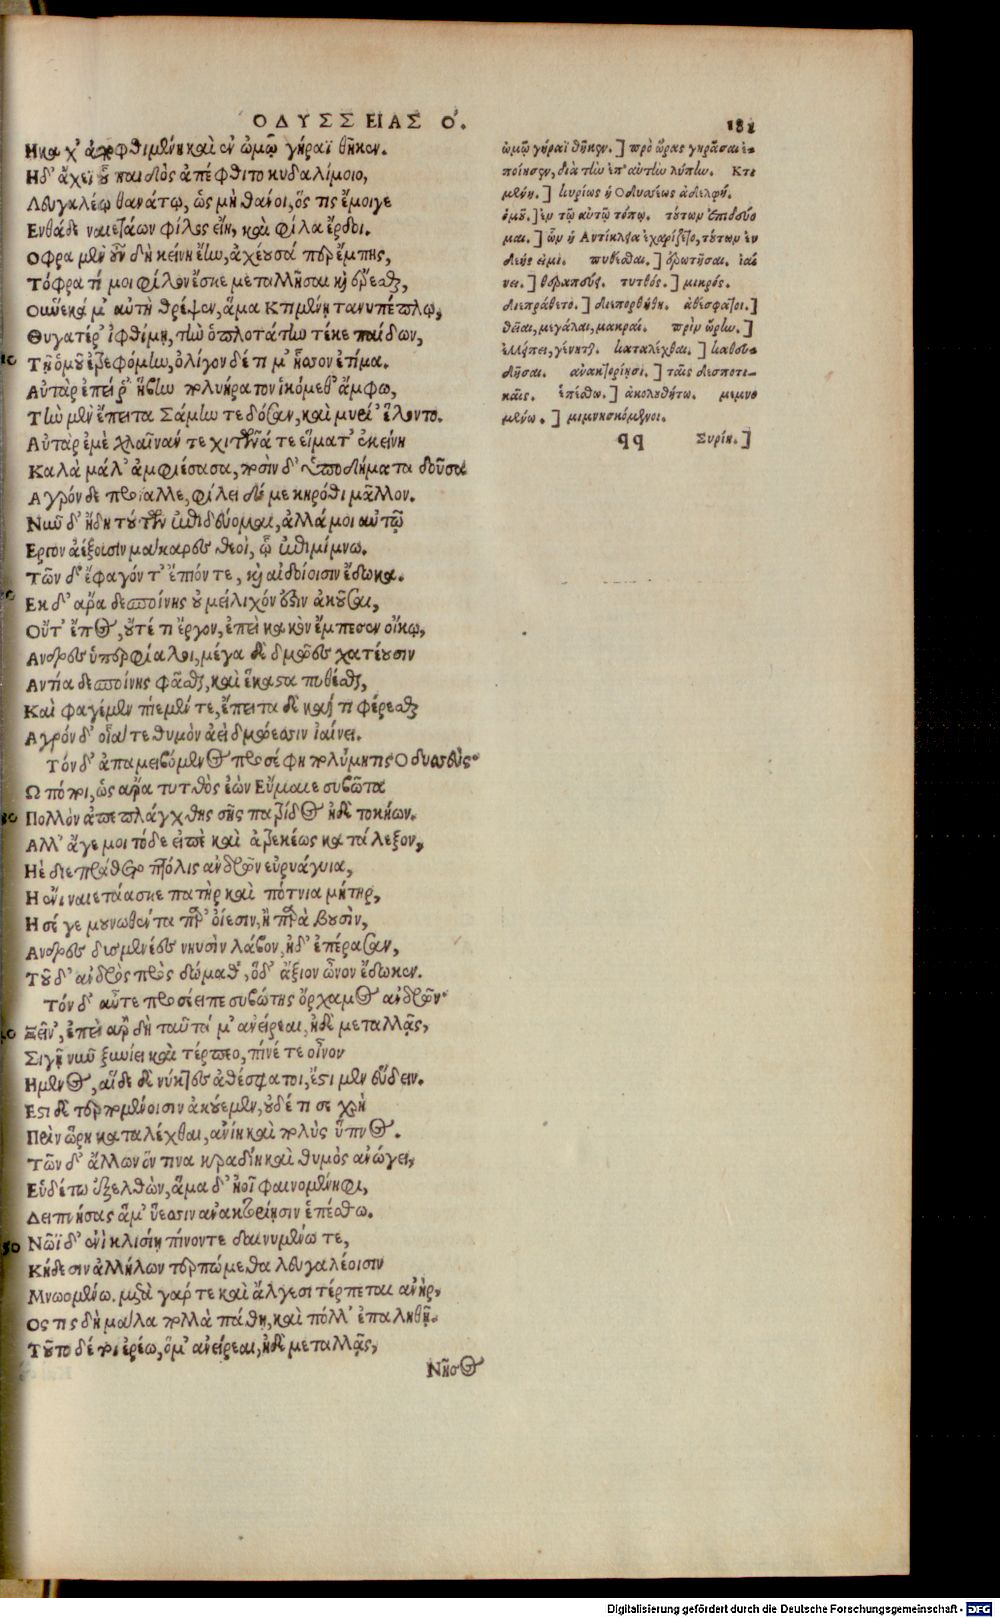 ΟΔΥΣΣΕΙΑΣ Ο.
181
Ηκα χ' ἀποφθιμένη καὶ ἐν ὠμῷ γήραϊ θῆκεν.
Ηδ' ἄχεϊ οὗ παιδὸς ἀπέφθιτο κυδαλίμοιο,
Λευγαλέῳ θανάτῳ, ὡς μὴ θάνοι, ὅς τις ἔμοιγε
Ενθάδε ναιετάων φίλος εἴη, καὶ φίλα ἔρδοι.
Οφρα μὲν οὖν δὴ κείνη ἔην, ἀχέουσά περ ἔμπης,
Τόφρα τί μοι φίλον ἔσκε μεταλλῆσαι καὶ ἐρέσθαι,
Οὕνεκά μ' αὐτὴ θρέψεν, ἅμα Κτιμένῃ τανυπέπλῳ,
Θυγατέρ' ἰφθίμῃ, τὴν ὁπλοτάτην τέκε παίδων,
10 Τῇ ὁμοῦ ἐτρεφόμην, ὀλίγον δέ τι μ' ἧσσον ἐτίμα.
Αὐτὰρ ἐπεί ῥ' ἥβην πολυήρατον ἱκόμεθ' ἄμφω,
Τὴν μὲν ἔπειτα Σάμην τε δόσαν, καὶ μυεί' ἕλοντο.
Αὐτὰρ ἐμὲ χλαῖναν τε χιτῶνά τε εἵματ' ἐκείνη
Καλὰ μάλ' ἀμφιέσασα, ποσὶν δ' ὑποδήματα δοῦσα
Αγρόνδε προίαλλε, φίλει δέ με κηρόθι μᾶλλον.
Νῦν δ' ἤδη τούτων ἐπιδεύομαι, ἀλλά μοι αὐτῷ
Εργον ἀέξουσιν μάκαρες θεοὶ, ᾧ ἐπιμίμνω.
Τῶν δ' ἔφαγόν τ' ἔπιόν τε, καὶ αἰδοίοισιν ἔδωκα.
20 Εκ δ' ἄρα δεσποίνης οὐ μείλιχόν ἐστιν ἀκοῦσαι,
Οὔτ' ἔπος, οὔτέ τι ἔργον, ἐπεὶ κακὸν ἔμπεσεν οἴκῳ,
Ανδρες ὑπερφίαλοι, μέγα δὲ δμῶες χατέουσιν
Αντία δεσποίνης φᾶσθαι, καὶ ἕκαστα πυθέσθαι,
Καὶ φαγέμεν πιέμεν τε, ἔπειτα δὲ καί τι φέρεσθαι
Αγρόν δ' οἷά τε θυμὸν ἀεὶ δμώεσσιν ἰαίνει.
Τόν δ' ἀπαμειβόμενος προσέφη πολύμητις Οδυσσεύς·
Ω πόποι, ὡς ἄρα τυτθὸς ἐὼν Εὔμαιε συβῶτα
30 Πολλὸν ἀπεπλάγχθης σῆς πατρίδος ἠδὲ τοκήων.
Αλλ' ἄγε μοι τόδε εἰπὲ καὶ ἀτρεκέως κατάλεξον,
Ηὲ διεπράθετο πτόλις ἀνδρῶν εὐρυάγυια,
Η ἔνι ναιετάασκε πατὴρ καὶ πότνια μήτηρ,
Η σέ γε μουνωθέντα παρ' οἴεσιν, ἢ παρὰ βουσὶν,
Ανδρες δυσμενέες νηυσὶν λάβον, ἠδ' ἐπέρασαν,
Τοῦ δ' ἀνδρὸς πρὸς δώμαθ', ὅδ' ἄξιον ὦνον ἔδωκεν.
Τόν δ' αὖτε προσέειπε συβώτης ὄρχαμος ἀνδρῶν·
40 Ξεῖν', ἐπεὶ ἂρ δὴ ταῦτά μ' ἀνείρεαι, ἠδὲ μεταλλᾷς,
Σιγῇ νῦν ξυνίει καὶ τέρπεο, πῖνέ τε οἶνον
Ημενος, αἵδε δὲ νύκτες ἀθέσφατοι, ἔστι μὲν εὕδειν.
Εστι δὲ τερπομένοισιν ἀκούεμεν, οὐδέ τι σε χρὴ
Πρὶν ὥρη καταλέχθαι, ἀνίη καὶ πολὺς ὕπνος.
Τῶν δ' ἄλλων ὅντινα κραδίη καὶ θυμὸς ἀνώγει,
Εὑδέτω ἐξελθὼν, ἅμα δ' ἠοῖ φαινομένηφι,
Δειπνήσας ἅμ' ὕεσσιν ἀνακτορίῃσιν ἑπέσθω.
50 Νῶϊ δ' ἐνὶ κλισίῃ πίνοντε δαινυμένω τε,
Κήδεσιν ἀλλήλων τερπώμεθα λευγαλέοισιν
Μνωομένω. μετὰ γάρ τε καὶ ἄλγεσι τέρπεται ἀνὴρ,
Ος τις δὴ μάλα πολλὰ πάθῃ, καὶ πόλλ' ἐπαληθῇ.
Τοῦτο δέ τοι ἐρέω, ὅ μ' ἀνείρεαι, ἠδὲ μεταλλᾷς,
Νῆσος
ὠμῷ γήραϊ θῆκεν.] πρὸ ὥρας γηρᾶσαι ἐ-
ποίησεν, διὰ τὴν ἐπ' αὐτὴν λύπην. Κτι
μένῃ.] κυρίως ἡ Οδυσσέως ἀδελφή.
ὁμοῦ.] ἐν τῷ αὐτῷ τόπῳ. τούτων ἐπιδεύο
μαι.] ὧν ἡ Αντίκλεια ἐχαρίζετο, τούτων ἐν
δεής εἰμι. πυθέσθαι.] ἐρωτῆσαι. ἰαί
νει.] θεραπεύει. τυτθός.] μικρός.
διεπράθετο.] διεπορθήθη. ἀθέσφατοι.]
θεῖαι, μεγάλαι, μακραί. πρὶν ὥρη.]
ἐλλείπει, γένηται. καταλέχθαι.] καθευ-
δῆσαι. ἀνακτορίῃσι.] ταῖς δεσποτι-
καῖς. ἑπέσθω.] ἀκολουθήτω. μεμνο
μένω.] μιμνησκόμενοι.
qq Συρίη.]
Digitalisierung gefördert durch die Deutsche Forschungsgemeinschaft - DFG